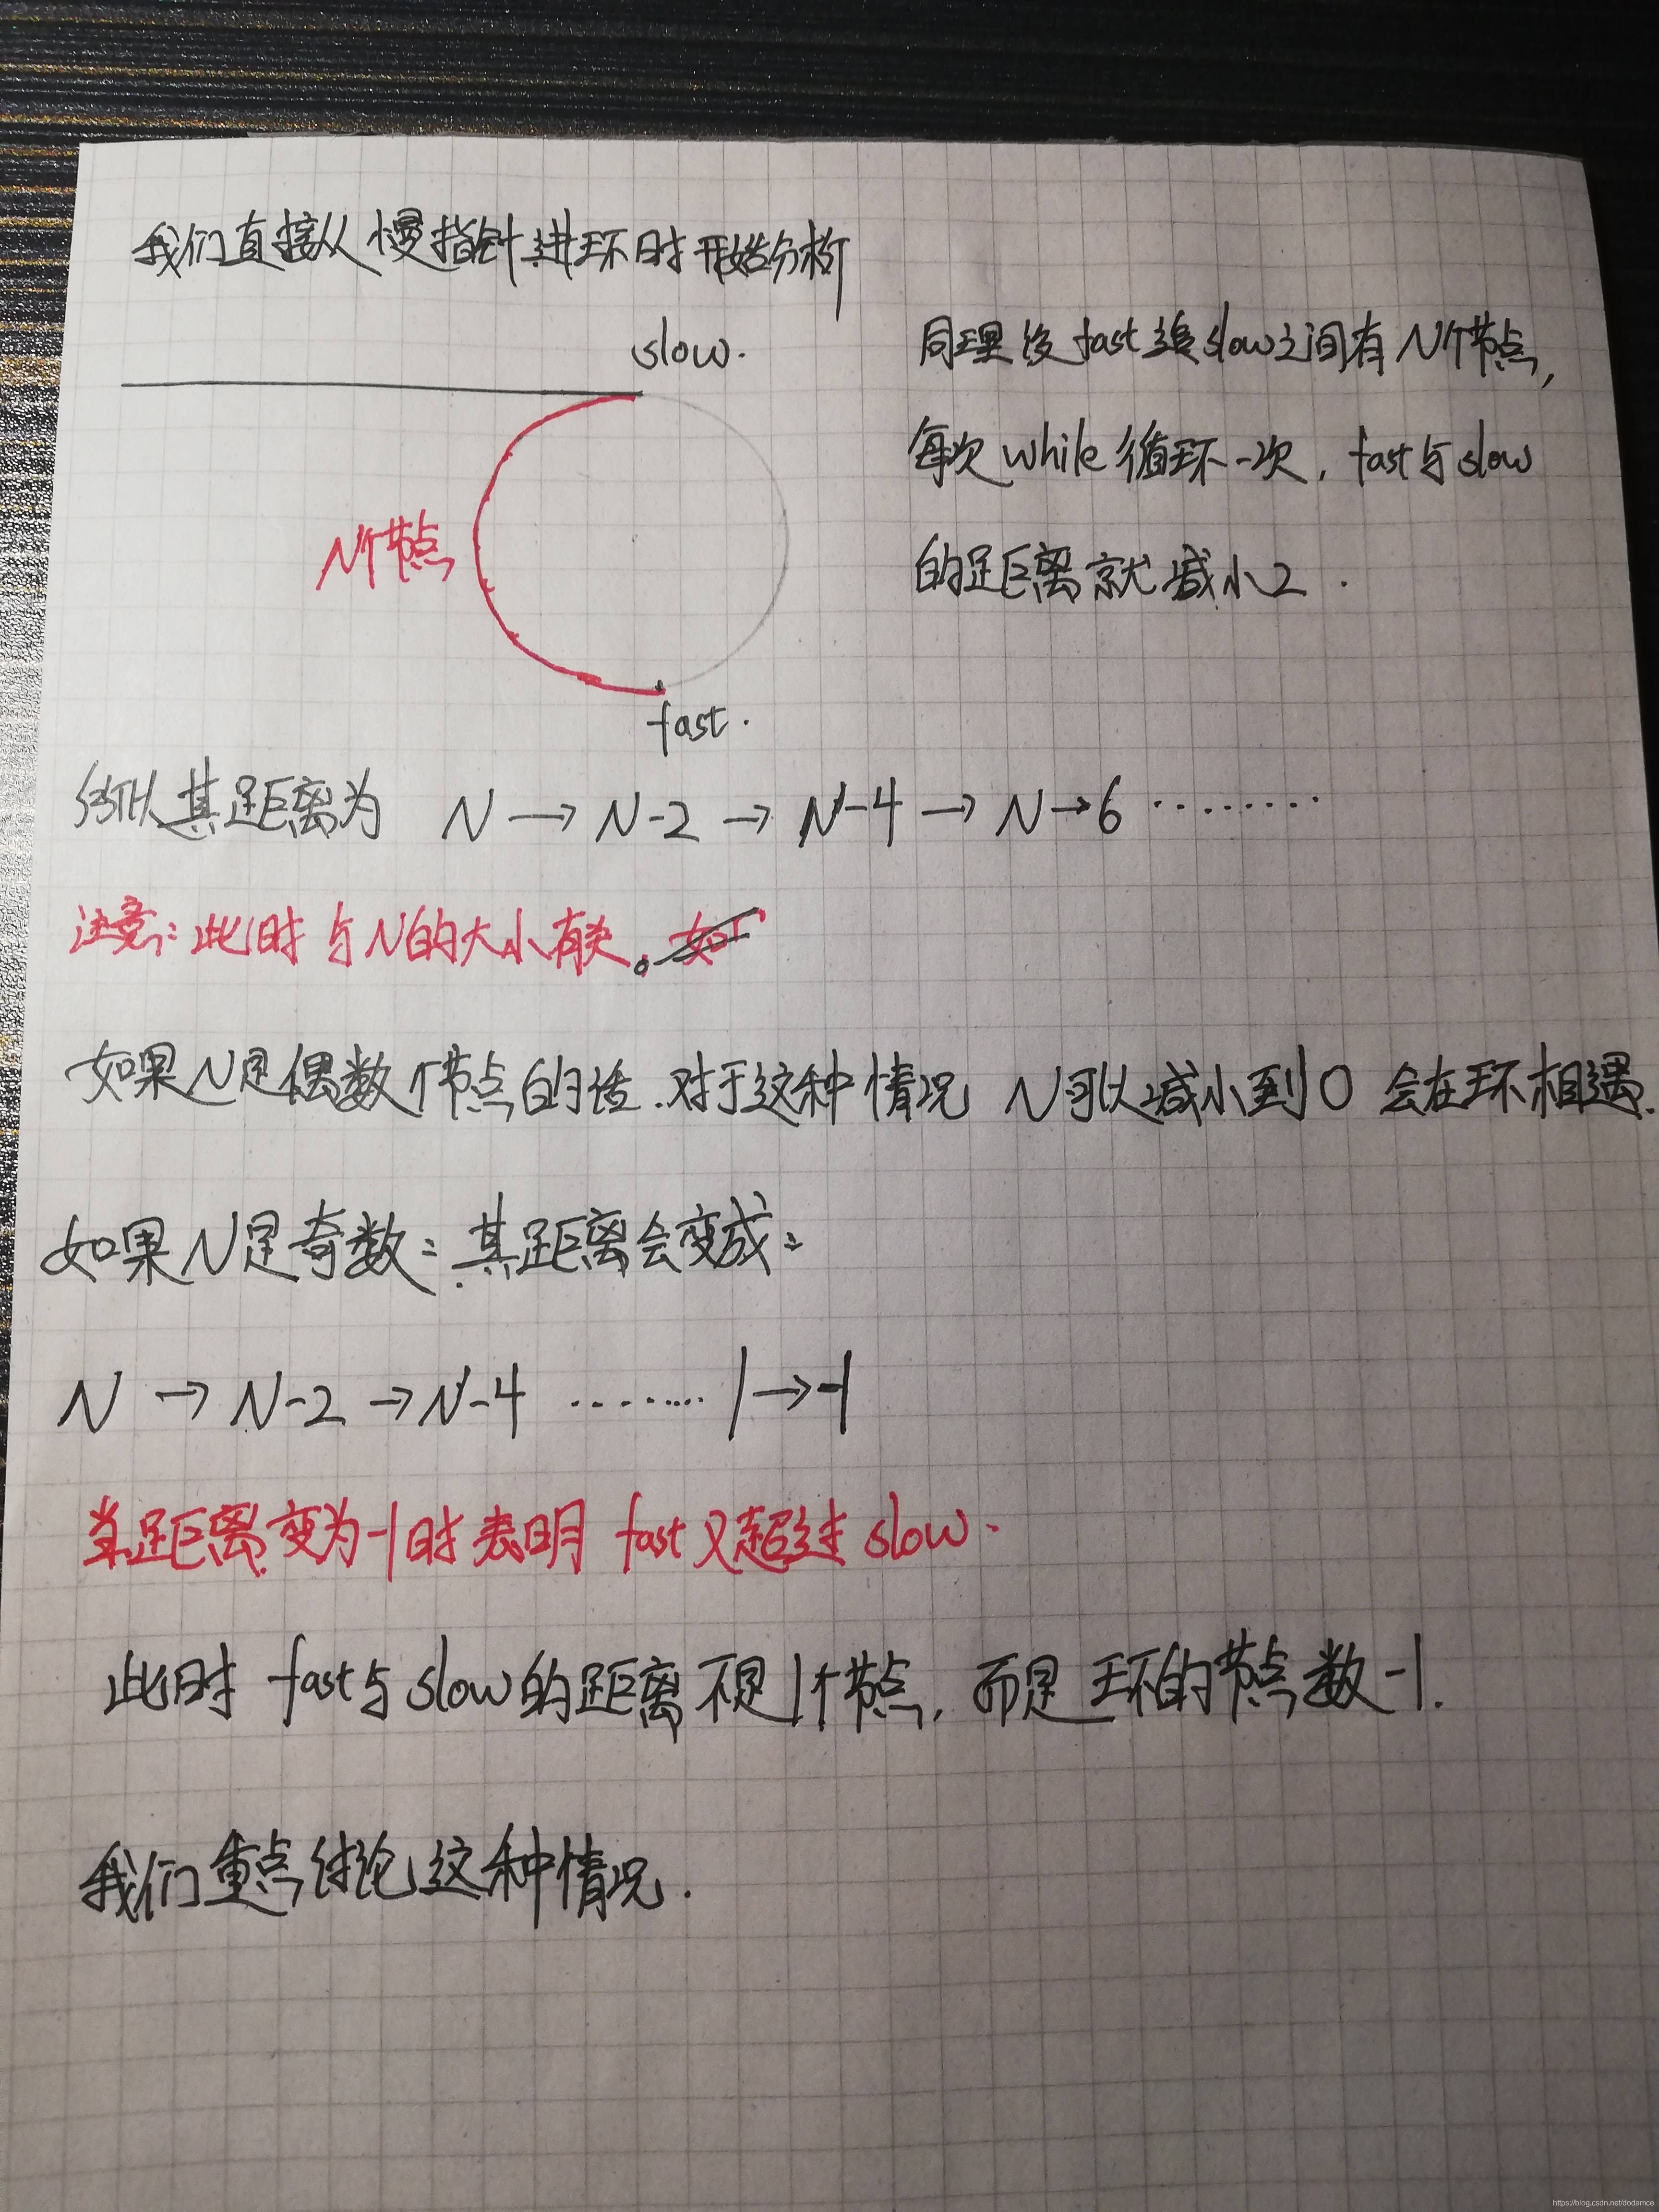 我们直接从慢指针进环时开始分析
slow.
N个节点
fast.
同理设fast追slow之间有N个节点,
每次while循环一次,fast与slow
的距离就减小2.
所以其距离为 N → N-2 → N-4 → N→6 ········
注意:此时与N的大小有关。如
如果N是偶数个节点的话.对于这种情况 N可以减小到0 会在环相遇.
如果N是奇数:其距离会变成:
N → N-2 → N-4 ········ 1→-1
当距离变为-1时表明 fast又超过slow.
此时 fast与slow的距离不是1个节点,而是环的节点数-1.
我们重点讨论这种情况.
https://blog.csdn.net/dodamce